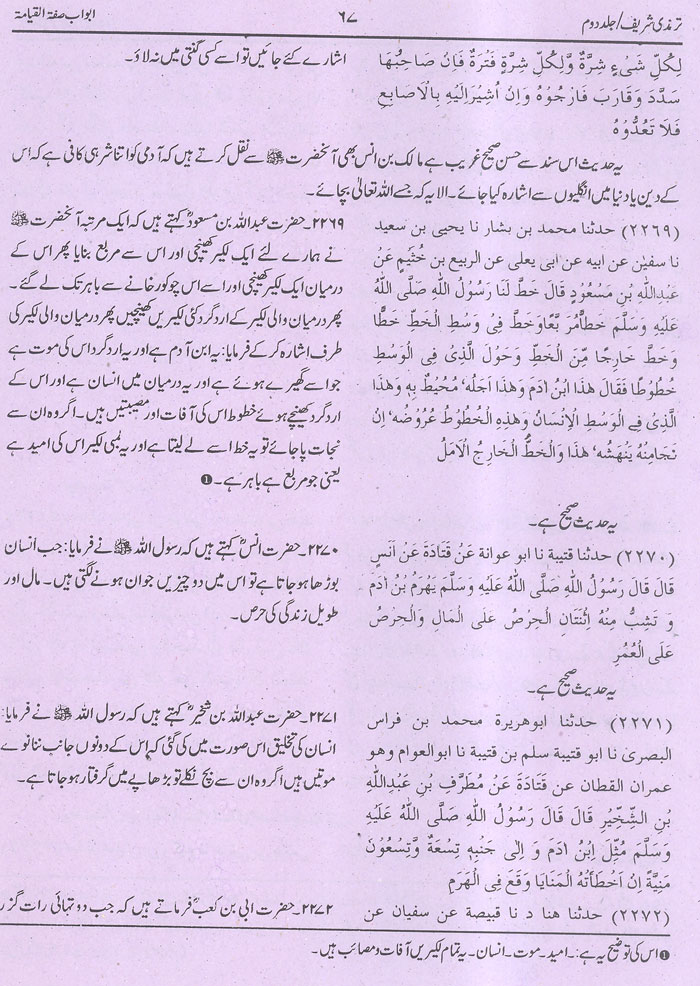 ترمذی شریف/جلد دوم
۶۷
ابواب صفۃ القیامۃ
لِكُلِّ شَیْءٍ شِرَّةٌ وَّلِكُلِّ شِرَّةٍ فَتْرَةٌ فَاِنْ صَاحِبُهَا
سَدَّدَ وَقَارَبَ فَارْجُوْهُ وَاِنْ اُشِیْرَ اِلَیْهِ بِالْاَصَابِعِ
فَلَا تَعُدُّوْهُ
اشارے کئے جائیں تو اسے کسی گنتی میں نہ لاؤ۔
یہ حدیث اس سند سے حسن صحیح غریب ہے مالک بن انس بھی آنحضرت ﷺ سے نقل کرتے ہیں کہ آدمی کو اتنا شر ہی کافی ہے کہ اس
کے دین یا دنیا میں انگلیوں سے اشارہ کیا جائے۔ الا یہ کہ جسے اللہ تعالیٰ بچائے۔
(۲۲۶۹) حدثنا محمد بن بشار نا یحیی بن سعید
نا سفیٰن عن ابیه عن ابی یعلی عن الربیع بن خُثَیْمٍ عَنْ
عَبْدِاللّٰهِ بْنِ مَسْعُوْدٍ قَالَ خَطَّ لَنَا رَسُوْلُ اللّٰهِ صَلَّی اللّٰهُ
عَلَیْهِ وَسَلَّمَ خَطًّا مُّرَبَّعًا وَّخَطَّ فِی وَسْطِ الْخَطِّ خَطًّا
وَخَطَّ خَارِجًا مِّنَ الْخَطِّ وَحَوْلَ الَّذِیْ فِی الْوَسْطِ
خُطُوْطًا فَقَالَ هٰذَا ابْنُ اٰدَمَ وَهٰذَا اَجَلُهٗ مُحِیْطٌ بِهٖ وَهٰذَا
الَّذِیْ فِی الْوَسْطِ الْاِنْسَانُ وَهٰذِهِ الْخُطُوْطُ عُرُوْضُهٗ اِنْ
نَجَا مِنْهُ یَنْهَشُهٗ هٰذَا وَالْخَطُّ الْخَارِجُ الْاَمَلُ
۲۲۶۹۔ حضرت عبداللہ بن مسعودؓ کہتے ہیں کہ ایک مرتبہ آنحضرت ﷺ
نے ہمارے لئے ایک لکیر کھینچی اور اس سے مربع بنایا پھر اس کے
درمیان ایک لکیر کھینچی اور اسے اس چوکور خانے سے باہر تک لے گئے۔
پھر درمیان والی لکیر کے ارد گرد کئی لکیریں کھینچیں پھر درمیان والی لکیر کی
طرف اشارہ کر کے فرمایا: یہ ابن آدم ہے اور یہ ارد گرد اس کی موت ہے
جو اسے گھیرے ہوئے ہے اور یہ درمیان میں انسان ہے اور اس کے
ارد گرد کھینچے ہوئے خطوط اس کی آفات اور مصیبتیں ہیں۔ اگر وہ ان سے
نجات پا جائے تو یہ خط اسے لے لیتا ہے اور یہ لمبی لکیر اس کی امید ہے
یعنی جو مربع سے باہر ہے۔ ❶
یہ حدیث صحیح ہے۔
(۲۲۷۰) حدثنا قتیبة نا ابو عوانة عَنْ قَتَادَةَ عَنْ اَنَسٍ
قَالَ قَالَ رَسُوْلُ اللّٰهِ صَلَّی اللّٰهُ عَلَیْهِ وَسَلَّمَ یَهْرَمُ بْنُ اٰدَمَ
وَ تَشِبُّ مِنْهُ اِثْنَتَانِ الْحِرْصُ عَلَی الْمَالِ وَالْحِرْصُ
عَلَی الْعُمُرِ
۲۲۷۰۔ حضرت انسؓ کہتے ہیں کہ رسول اللہ ﷺ نے فرمایا: جب انسان
بوڑھا ہو جاتا ہے تو اس میں دو چیزیں جوان ہونے لگتی ہیں۔ مال اور
طویل زندگی کی حرص۔
یہ حدیث صحیح ہے۔
(۲۲۷۱) حدثنا ابوهریرة محمد بن فراس
البصری نا ابو قتیبة سلم بن قتیبة نا ابوالعوام وهو
عمران القطان عن قَتَادَةَ عَنْ مُطَرِّفِ بْنِ عَبْدِاللّٰهِ
بْنِ الشِّخِّیْرِ قَالَ قَالَ رَسُوْلُ اللّٰهِ صَلَّی اللّٰهُ عَلَیْهِ
وَسَلَّمَ مُثِّلَ اِبْنُ اٰدَمَ وَ اِلٰی جَنْبِهٖ تِسْعَةٌ وَّتِسْعُوْنَ
مَنِیَّةً اِنْ اَخْطَأَتْهُ الْمَنَایَا وَقَعَ فِی الْهَرَمِ
۲۲۷۱۔ حضرت عبداللہ بن شخیرؓ کہتے ہیں کہ رسول اللہ ﷺ نے فرمایا:
انسان کی تخلیق اس صورت میں کی گئی کہ اس کے دونوں جانب ننانوے
موتیں ہیں اگر وہ ان سے بچ نکلے تو بڑھاپے میں گرفتار ہو جاتا ہے۔
(۲۲۷۲) حدثنا هنا د نا قبیصة عن سفیان عن
۲۲۷۲۔ حضرت ابی بن کعبؓ فرماتے ہیں کہ جب دو تہائی رات گزر
❶ اس کی توضیح یہ ہے:۔ امید۔ موت۔ انسان۔ یہ تمام لکیریں آفات و مصائب ہیں۔